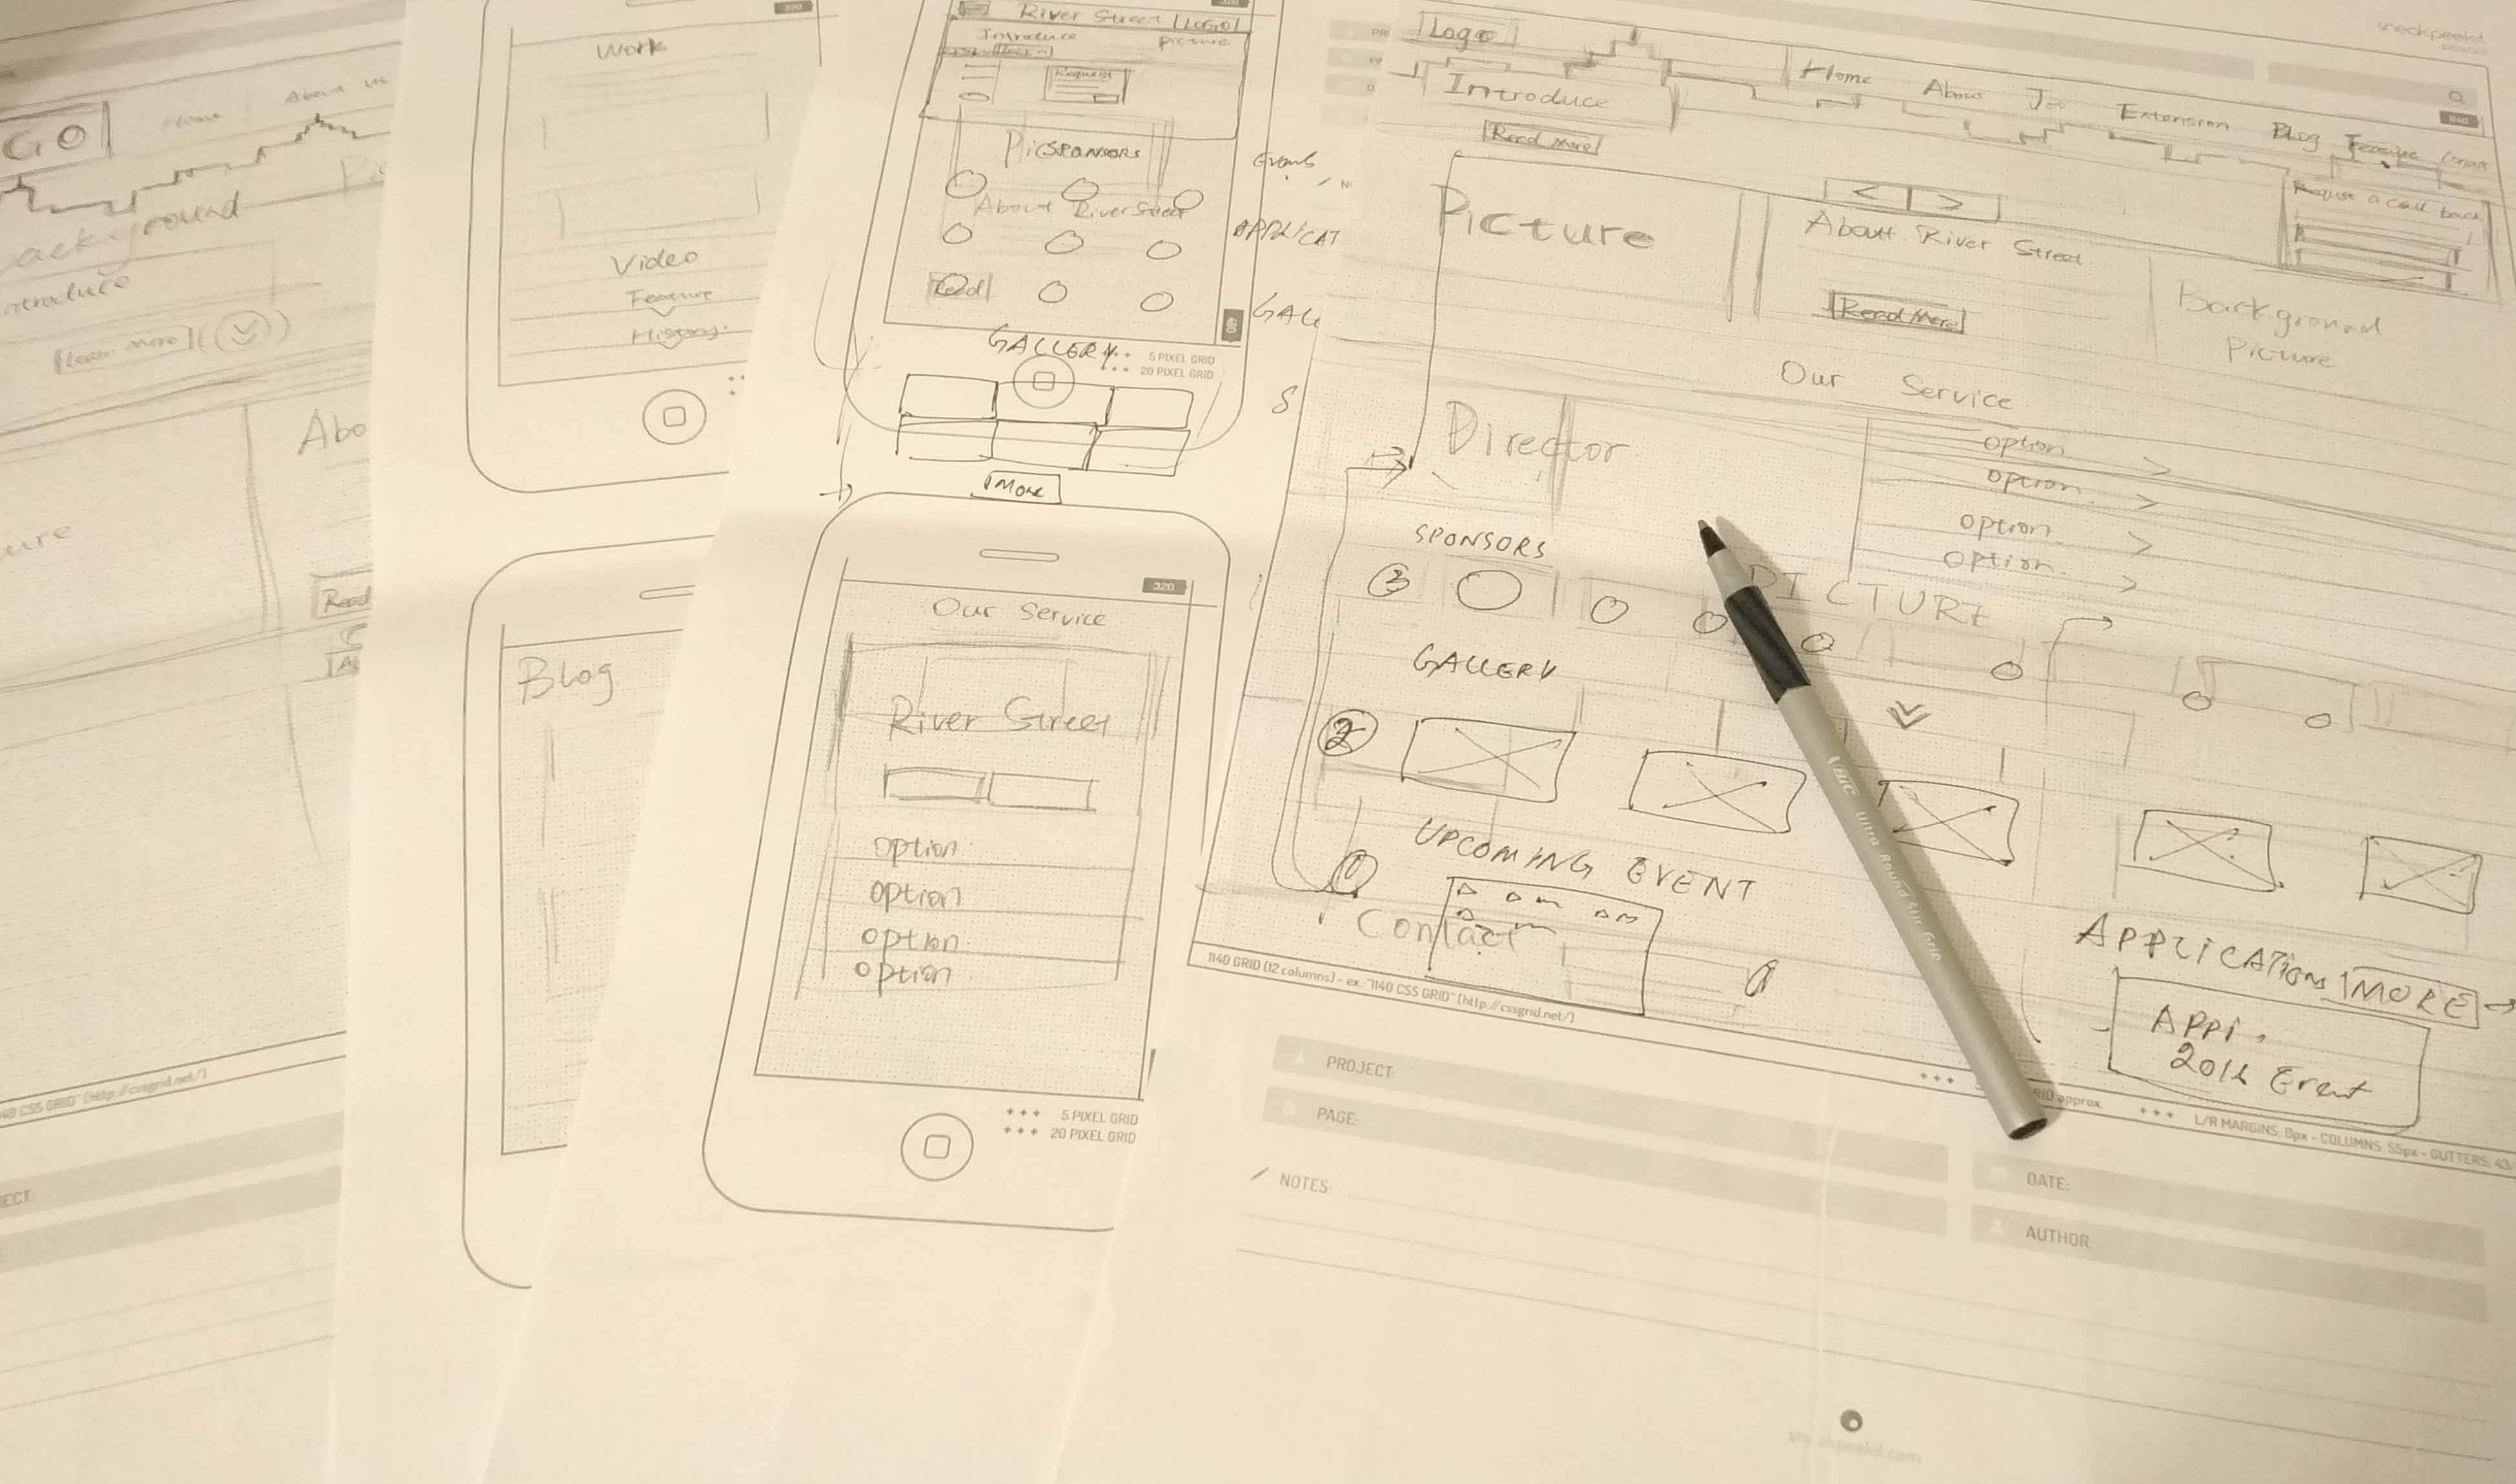 GO
Home
About us
ackground
ntroduce
Learn More
Abo
ure
Read
40 CSS GRID" (http://cssgrid.net/)
ECT:
320
Work
Video
Feature
History
Blog
River Street LOGO
Introduce
Picture
Request
Pic SPONSORS
About River Street
Read
480
GALLERY
5 PIXEL GRID
20 PIXEL GRID
More
Events
APPLICAT
GALL
S
320
Our Service
River Street
option
option
option
option
5 PIXEL GRID
20 PIXEL GRID
sneakpeekit
Logo
Home About Job Extension Blog Feature Contact
1140
Introduce
Read More
Request a call back
Picture
< >
About River Street
Read More
Background
Picture
Our Service
Director
option >
option >
option >
option >
SPONSORS
3
PICTURE
GALLERY
2
UPCOMING EVENT
1
Contact
APPLICATIONS MORE
APPl.
2016 Event
1140 GRID (12 columns) - ex. "1140 CSS GRID" (http://cssgrid.net/)
RID approx.
L/R MARGINS: 0px - COLUMNS: 55px - GUTTERS: 43
BIC Ultra Round Stic Grip
PROJECT:
PAGE:
NOTES:
DATE:
AUTHOR:
sneakpeekit.com